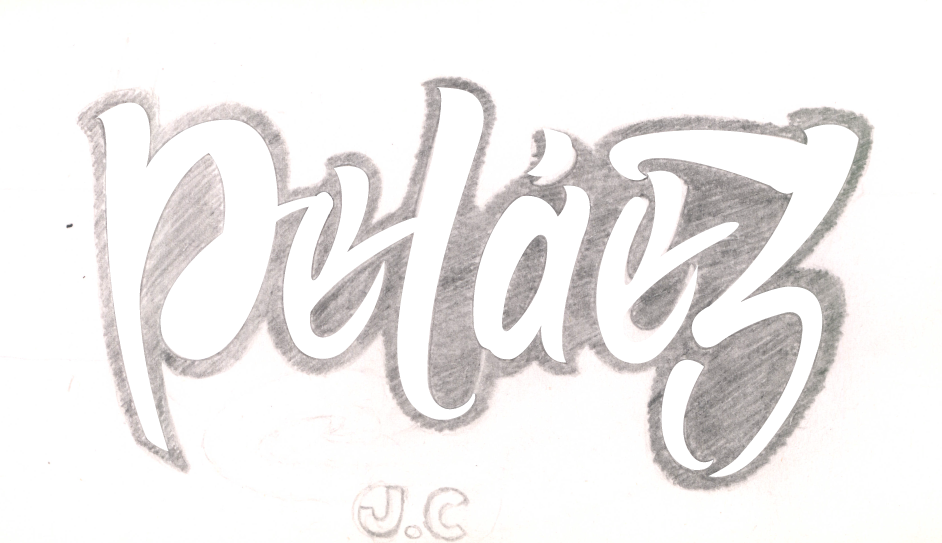 Peláez
J.C